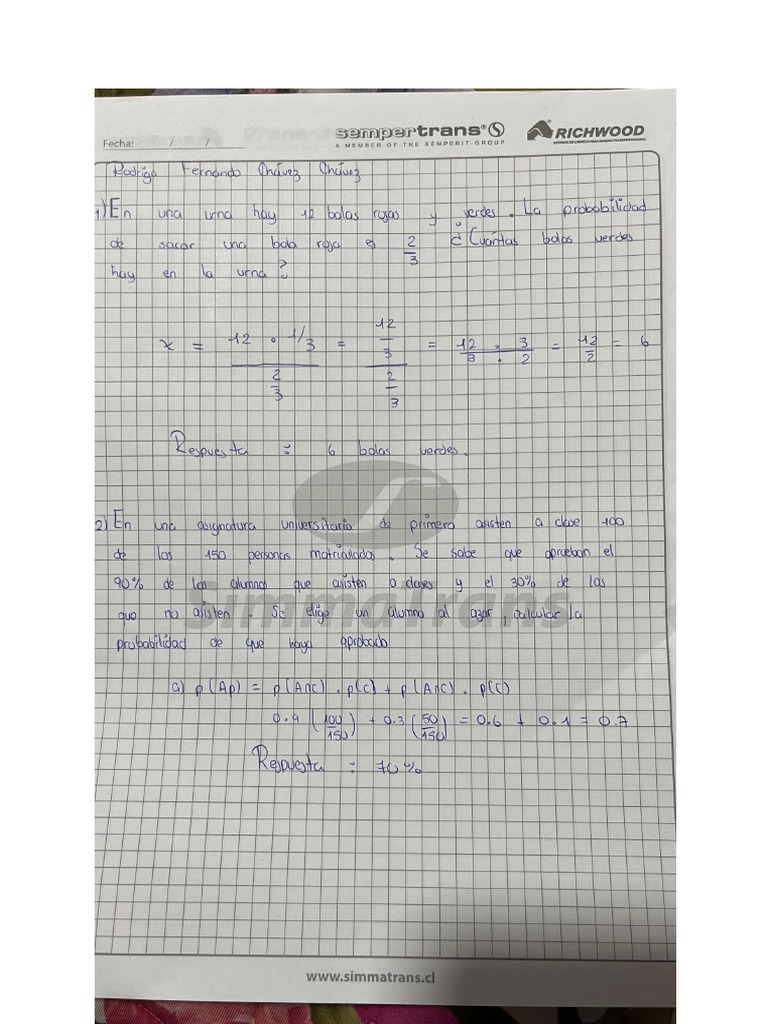 Fecha: / /
sempertrans
A MEMBER OF THE SEMPERIT-GROUP
RICHWOOD
Rodrigo Fernando Chávez Chávez
1) En una urna hay 12 bolas rojas y verdes. La probabilidad
de sacar una bola roja es 2/3 ¿Cuántas bolas verdes
hay en la urna?
x = (12 · 1/3) / (2/3) = (12/3) / (2/3) = (12 · 3) / (3 · 2) = 12/2 = 6
Respuesta : 6 bolas verdes.
2) En una asignatura universitaria de primero asisten a clase 100
de las 150 personas matriculados. Se sabe que aprueban el
90% de los alumnos que asisten a clases y el 30% de los
que no asisten. Se elige un alumno al azar, calcular la
probabilidad de que haya aprobado
a) p(Ap) = p(A∩c) . p(c) + p(A∩c) . p(c)
0.9 (100/150) + 0.3 (50/150) = 0.6 + 0.1 = 0.7
Respuesta : 70%
Simmatrans
www.simmatrans.cl